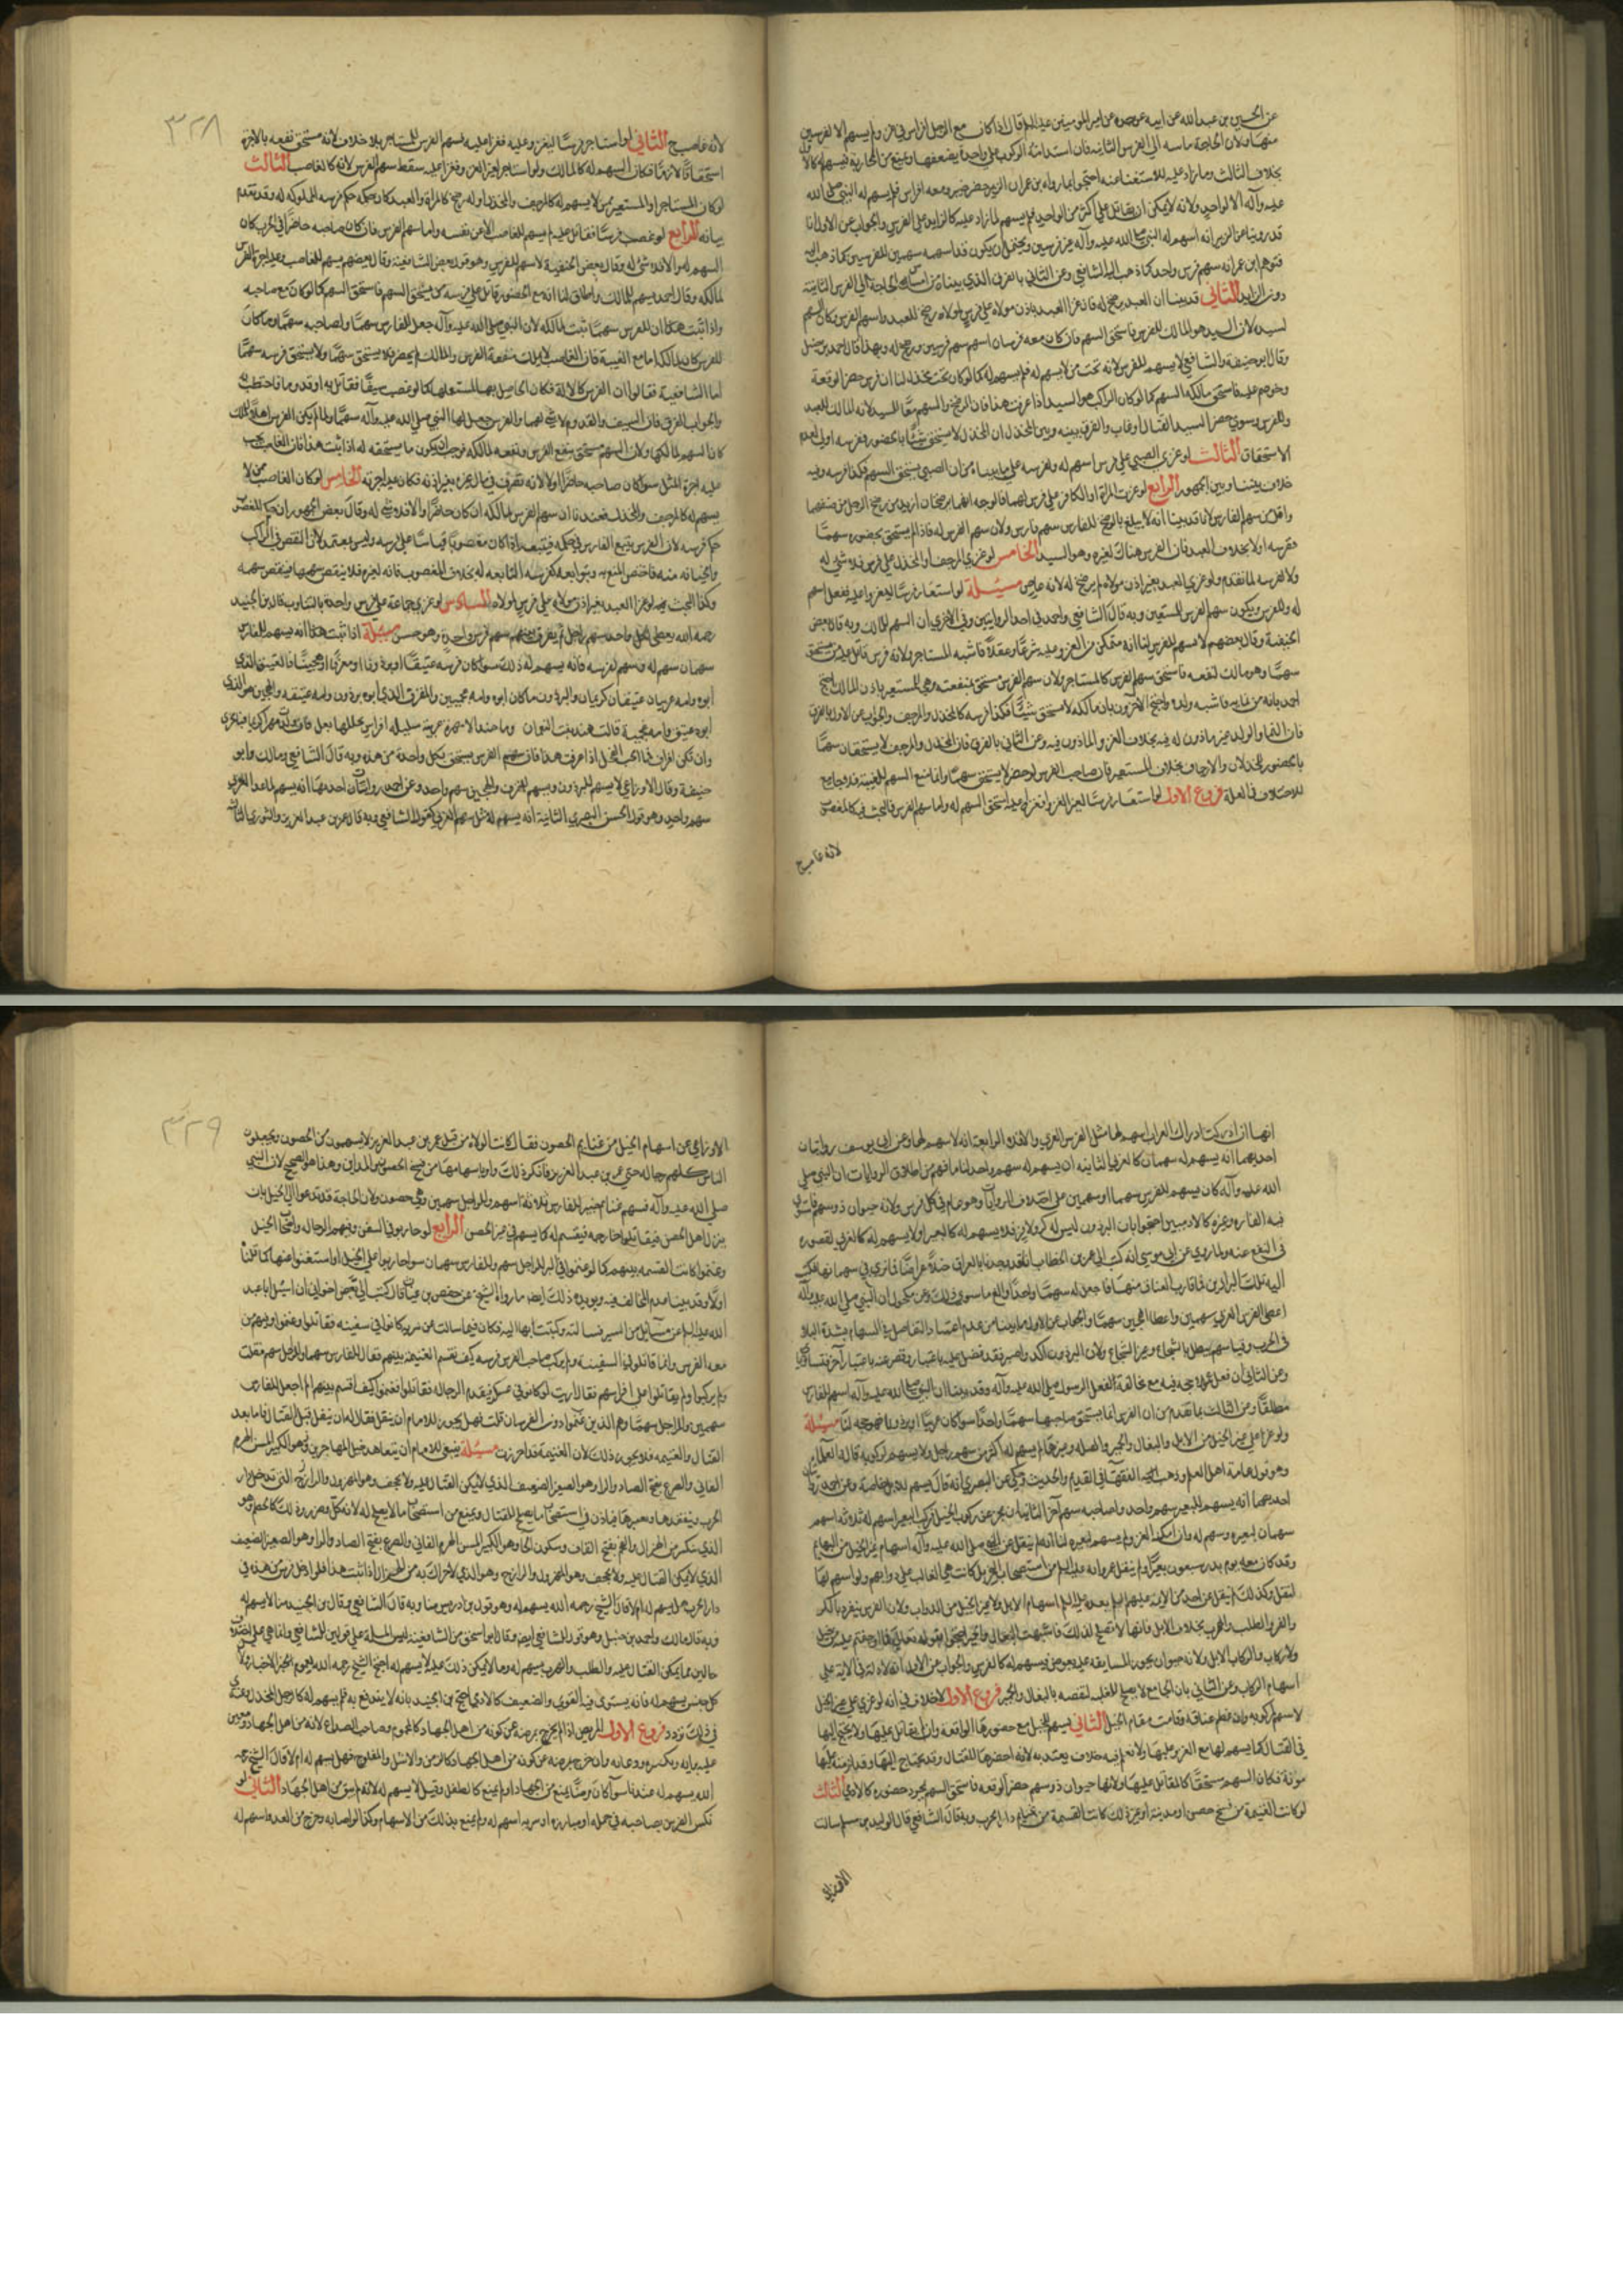 عن الحسين بن عبد الله عن ابيه عن جده عن امير المومنين عليه السلم قال اذا كان مع الرجل افراس في الغزو لم يسهم الا لفرسين
منها ولان الحاجة ماسة الى الفرس الثانية فان استدامة الركوب على واحد يضعفها ويمنع من المحاربة فيسهم له كالاول
بخلاف الثالث وما زاد عليه للاستغناء عنه احتجوا بما رواه بن عمر ان الزبير حضر خيبر ومعه افراس فلم يسهم له النبي صلى الله
عليه وآله الا لواحد ولانه لا يمكن ان يقاتل على اكثر من الواحد فلم يسهم لما زاد عليه كالزايد على الفرسين والجواب عن الاول انا
قد روينا عن الزبير انه اسهم له النبي صلى الله عليه وآله عن فرسين ويحتمل ان يكون قد اسهمه سهمين للفرسين كما ذهب اليه
فتوهم ابن عمر انه سهم فرس واحد كما ذهب اليه الشافعي وعن الثاني بالفرق الذي بيناه من امساس الحاجة الى الفرس الثانية
دون الزايد الثاني قد بينا ان العبد يرضخ له فان غزا العبد باذن مولاه على فرس لمولاه رضخ للعبد واسهم للفرس وكان السهم
لسيده لان السيد هو المالك للفرس فاستحق السهم فان كان معه فرسان اسهم سهم فرسين ورضخ له وبهذا قال احمد بن حنبل
وقال ابو حنيفة والشافعي لا يسهم للفرس لانه تحت من لا يسهم له فلم يسهم له كما لو كان تحت مخذل لنا ان فرس حضر الوقعة
وخوصم عليه فاستحق مالكه السهم كما لو كان الراكب هو السيد اذا عرفت هذا فان الرضخ والسهم معا للسيد لانه المالك للعبد
وللفرس وسوى حضر السيد القتال او غاب والفرق بينه وبين المخذل ان المخذل لا يستحق شيئا بالحضور ففرسه اولى لعدم
الاستحقاق الثالث لو غزى الصبي على فرس اسهم له ولفرسه على ما بيناه من ان الصبي يستحق السهم فكذا فرسه وفيه
خلاف بيننا وبين الجمهور الرابع لو غزت المراة او الكافر على فرس لهما فالوجه انهما يرضخان ازيد من رضخ الراجل من صنفهما
واقل من سهم الفارس لانا قد بينا انه لا يبلغ بالرضخ للفارس سهم فارس ولان سهم الفرس له فاذا لم يستحق بحضوره سهما
ففرسه اولا بخلاف العبد فان الفرس هناك لغيره وهو السيد الخامس لو غزى المرجف او المخذل على فرس فلا شي له
ولا لفرسه لما تقدم ولو غزى العبد بغير اذن مولاه لم يرضخ له لانه عاص مسئلة لو استعار فرسا ليغزو عليه ففعل اسهم
له وللفرس ويكون سهم الفرس للمستعير وبه قال الشافعي واحمد في احد الروايتين وفي الاخرى ان السهم للمالك وبه قال بعض
الحنفية وقال بعضهم لا سهم للفرس لنا انه متمكن من الغزو عليه شرعا وعقلا فاشبه المستاجر ولانه فرس قاتل عليه من يستحق
سهما وهو مالك لنفعه فاستحق سهم الفرس كالمستاجر ولان سهم الفرس مستحق بمنفعته وهي للمستعير باذن المالك احتج
احمد بانه من نمايه فاشبه ولده واحتج الآخرون بان مالكه لا يستحق شيئا فكذا فرسه كالمخذل والمرجف والجواب عن الاول بالفرق
فان النما والولد غير ماذون له فيه بخلاف الغزو والماذون فيه وعن الثاني بالفرق فان المخذل والمرجف لا يستحقان سهما
بالحضور للخذلان والارجاف بخلاف المستعير فان صاحب الفرس لو حضر لاستحق سهما وانما منع السهم للغيبة فلا جامع
للاختلاف في العلة فروع الاول لو استعار فرسا لغير الغزو فغزا عليه استحق السهم له واما سهم الفرس فالبحث فيه كالمغصوب
لانه غاصب
٣٢٨
لانه غاصب الثاني لو استاجر فرسا ليغزو عليه فغزا عليه فسهم الفرس للمستاجر بلا خلاف لانه مستحق نفعه بالاجرة
استحقاقا لازما فكان السهم له كالمالك ولو استاجر لغير الغزو فغزا عليه سقط سهم الفرس لانه كالغاصب الثالث
لو كان المستاجر او المستعير ممن لا يسهم له كالمرجف والمخذل او له رضخ كالمراة والعبد كان حكمه حكم فرسه المملوكة له وقد تقدم
بيانه الرابع لو غصب فرسا فقاتل عليه لم يسهم للغاصب الا عن نفسه واما سهم الفرس فان كان صاحبه حاضرا في الحرب كان
السهم له والا فلا شي له وقال بعض الحنفية لا سهم للفرس وهو قول بعض الشافعية وقال بعضهم يسهم للغاصب وعليه اجرة الفرس
لمالكه وقال احمد يسهم للمالك واطلق لنا انه مع الحضور قاتل على فرسه من يستحق السهم فاستحق السهم كما لو كان مع صاحبه
واذا ثبت هذا ان للفرس سهما ثبت لمالكه لان النبي صلى الله عليه وآله جعل للفارس سهما ولصاحبه سهما وما كان
للفرس كان لمالكه اما مع الغيبة فان الغاصب لا يملك منفعة الفرس والمالك لم يحضر فلا يستحق سهما ولا يستحق فرسه سهما
اما الشافعية فقالوا ان الفرس كالالة فكان الحاصل بها لمستعملها كما لو غصب سيفا فقاتل به او قدوما فاحتطب به
والجواب الفرق فان السيف والقدوم لا شي لهما والفرس جعل لها النبي صلى الله عليه وآله سهما ولما لم يكن الفرس اهلا للملك
كان السهم لمالكها ولان السهم مستحق بنفع الفرس ونفعه لمالكه فوجب ان يكون ما يستحقه له اذا ثبت هذا فان الغاصب يجب
عليه اجرة المثل سوا كان صاحبه حاضرا او لا لانه تصرف في مال غيره بغير اذنه فكان عليه اجرته الخامس لو كان الغاصب ممن لا
يسهم له كالمرجف والمخذل فعندنا ان سهم الفرس لمالكه ان كان حاضرا والا فلا شي له وقال بعض الجمهور ان حكم المغصوب
حكم فرسه لان الفرس يتبع الفارس في حكمه فيتبعه اذا كان مغصوبا قياسا على فرسه وليس بمعتمد لان النقص في الراكب
والجناية منه فاختص المنع به وبتوابعه كفرسه التابعة له بخلاف المغصوب فانه لغيره فلا ينقص سهمها بنقص سهمه
وكذا البحث فيه لو غزا العبد بغير اذن مولاه على فرس لمولاه السادس لو غزى جماعة على فرس واحدة بالتناوب قال ابن الجنيد
رحمه الله يعطى لكل واحد سهم راجل ثم يفرق بينهم سهم فرس واحدة وهو حسن مسئلة اذا ثبت هذا انه يسهم للفارس
سهمان سهم له وسهم لفرسه فانه يسهم له ذلك سوا كان فرسه عتيقا او برذونا او مقرفا او هجينا فالعتيق الذي
ابوه وامه عربيان عتيقان كريمان والبرذون ما كان ابوه وامه عجميين والمقرف الذي ابوه برذون وامه عتيقه والهجين هو الذي
ابوه عتيق وامه عجمية قالت هند بنت النعمان وما هند الا مهرة عربية سليلة افراس تجللها بغل فان ولدت مهرا كريما فبالحرى
وان يكن اقراف فما انجب الفحل اذا عرفت هذا فان سهم الفرس يستحق بكل واحدة من هذه وبه قال الشافعي ومالك وابو
حنيفة وقال الاوزاعي لا يسهم للبرذون ويسهم للمقرف والهجين سهم واحد وعن احمد روايتان احديهما انه يسهم لما عدا العربي
سهم واحد وهو قول الحسن البصري الثانية انه يسهم له مثل سهم العربي كقول الشافعي وبه قال عمر بن عبد العزيز والثوري الثالثة
انها ان ادركت ادراك العراب اسهم لها مثل الفرس العربي والا فلا الرابعة انه لا سهم لها وعن ابي يوسف روايتان
احديهما انه يسهم له سهمان كالعربي الثانية ان يسهم له سهم واحد لنا ما فهم من اطلاق الروايات ان النبي صلى
الله عليه وآله كان يسهم للفرس سهما او سهمين على اختلاف الروايات وهو عام في كل فرس ولانه حيوان ذو سهم فاستوى
فيه الفاره وغيره كالادميين احتجوا بان البرذون ليس له كر ولا فر فلا يسهم له كالبعير او لا يسهم له كالعربي لقصوره
في النفع عنه ولما روي عن ابي موسى انه كتب الى عمر بن الخطاب انا قد وجدنا بالعراق خيلا عراضا فما ترى في سهمانها فكتب
اليه تلك البراذين فما قارب العتاق منها فاجعل له سهما واحدا والغ ما سوى ذلك وعن مكحول ان النبي صلى الله عليه وآله
اعطى الفرس العربي سهمين واعطا الهجين سهما والجواب عن الاول ما بينا من عدم اعتبار التفاضل في السهام بشدة البلا
في الحرب وقياسهم يبطل بالشجاع وغير الشجاع ولان البرذون اكد واصبر فقد فضل عليه باعتبار وقصر عنه باعتبار آخر فتساويا
وعن الثاني ان فعل عمر لا حجة فيه مع مخالفة الفعل الرسول صلى الله عليه وآله وقد بينا ان النبي صلى الله عليه وآله اسهم للفارس
مطلقا وعن الثالث بما تقدم من ان الفرس انما يستحق صاحبها سهما واحدا سوا كان عربيا او برذونا فهو حجة لنا مسئلة
ولو غزا على غير الخيل من الابل والبغال والحمير والفيلة وغيرها لم يسهم له اكثر من سهم راجل ولا يسهم لركوبه قاله العلماء
وهو قول عامة اهل العلم وذهب اليه الفقهآ في القديم والحديث وحكي عن البصري انه قال يسهم للابل خاصة وعن احمد روايتان
احديهما انه يسهم للبعير سهم واحد ولصاحبه سهم آخر الثانية ان عجز عن ركوب الخيل فركب البعير اسهم له ثلاثة اسهم
سهمان لبعيره وسهم له وان امكنه الغزو لم يسهم لبعيره لنا انه لم ينقل عن النبي صلى الله عليه وآله اسهام غير الخيل من البهايم
وقد كان معه يوم بدر سبعون بعيرا ولم ينقل غزواته عليه السلم من استصحاب الابل بل كانت هي الغالب على دوابهم ولو اسهم لها
لنقل وكذلك لم ينقل عن احد من الائمة عليهم السلم بعده عليه السلم اسهام الابل ولا غير الخيل من الدواب ولان الفرس ينفرد بالكر
والفر والطلب والهرب بخلاف الابل فانها لا تصلح لذلك فاشبهت البغال والحمير احتجوا بقوله تعالى فما اوجفتم عليه من خيل
ولا ركاب والركاب الابل ولانه حيوان يجوز المسابقه عليه بعوض فيسهم له كالفرس والجواب عن الاول انه لا دلالة في الآية على
اسهام الركاب وعن الثاني بان الجامع لا يصلح للغلبة لنقضه بالبغال والحمير فروع الاول لا خلاف في انه لو غزى على غير الخيل
لا سهم لركوبه وان عظم عناقه وقامت مقام الخيل الثاني يسهم للخيل مع حضورها الواقعة وان لم يقاتل عليها ولا يحتج اليها
في القتال كما يسهم لها مع الغزو عليها ولا نعلم فيه خلاف يعتد به لانه احضرها للقتال وقد يحتاج اليها وقد لزمته عليها
مونة فكان السهم مستحقا كالمقاتل عليها ولانها حيوان ذو سهم حضر الوقعة فاستحق السهم بمجرد حضوره كالادمي الثالث
لو كانت الغنيمة من فتح حصن او مدينة او غير ذلك كانت القسمة من غنايم دار الحرب وبه قال الشافعي قال الوليد بن مسلم سالت
الاوزاعي
٣٢٩
الاوزاعي عن اسهام الخيل من غنايم الحصون فقال كانت الولاة من قبل عمر بن عبد العزيز لا يسهمون من الحصون ويجعلون
الناس كلهم رجاله حتى عمر بن عبد العزيز فانكر ذلك وامر باسهامها من فتح الحصون والمداين وهذا هو الصحيح لان النبي
صلى الله عليه وآله قسم غنايم خيبر للفارس ثلاثة اسهم وللراجل سهمين وهي حصون ولان الحاجة قد تدعوا الى الخيل بان
ينزل اهل الحصن فيقاتلوا خارجه فيقسم له كما يسهم في غير الحصن الرابع لو حاربوا في السفن وفيهم الرجاله واصحاب الخيل
وغنموا كانت القسمة بينهم كما لو غنموا في البر للراجل سهم وللفارس سهمان سوا حاربوا على الخيل او استغنوا عنها كما قلنا
اولا وقد بينا عدم المخالف فيه ويويده ذلك ايضا ما رواه الشيخ عن حفص بن غياث قال كتب الي بعض اخواني ان اسئل ابا عبد
الله عليه السلم عن مسايل من السير فسالته وكتبت بها اليه فكان فيما سالت عن سرية كانوا في سفينه فقاتلوا وغنموا وفيهم من
معه الفرس وانما قاتلوا في السفينة ولم يركب صاحب الفرس فرسه كيف تقسم الغنيمة بينهم فقال للفارس سهمان وللراجل سهم فقلت
ولم يركبوا ولم يقاتلوا على افراسهم فقال ارايت لو كانوا في عسكر فتقدم الرجاله فقاتلوا فغنموا كيف اقسم بينهم الم اجعل للفارس
سهمين وللراجل سهما وهم الذين غنموا دون الفرسان قلت فهل يجوز للامام ان ينفل فقال له ان ينفل قبل القتال فاما بعد
القتال والغنيمه فلا يجوز ذلك لان الغنيمة قد احرزت مسئلة ينبغي للامام ان يتعاهد خيل المجاهدين وهو الكبير المسن الهرم
الفاني والضرع بفتح الصاد والرا وهو الصغير الضعيف الذي لا يمكن القتال عليه ولا عجف وهو المهزول والرازح التي تدخل دار
الحرب ويتفقدها ويعتبرها فياذن في استصحاب ما يصلح للقتال ويمنع من استصحاب ما لا يصلح له لانه كل وضرر وذلك كالحطم وهو
الذي ينكسر من الهزال والقحم بفتح القاف وسكون الحا وهو الكبير المسن الهرم الفاني والضرع بفتح الصاد والرا وهو الصغير الضعيف
الذي لا يمكن القتال عليه ولا عجف وهو المهزول والرازح وهو الذي لا حراك به من الهزال اذا ثبت هذا فلو ادخل فرس من هذه في
دار الحرب هل يسهم له ام لا قال الشيخ رحمه الله يسهم له وهو قول بن ادريس منا وبه قال الشافعي وقال بن الجنيد منا لا يسهم له
وبه قال مالك واحمد بن حنبل وهو قول الشافعي ايضا وقال ابو اسحق من الشافعية ليس المسئلة على قولين للشافعي وانما هي على اختلاف
حالين مما يمكن القتال عليه والطلب والهرب يسهم له وما لا يمكن ذلك عليه لا يسهم له احتج الشيخ رحمه الله بعموم الاخبار ولان
كل جنس يسهم له فانه يستوي فيه القوي والضعيف كالادمي احتج بن الجنيد بانه لا ينتفع به فلم يسهم له كالرجل المخذل وعندي
في ذلك تردد فروع الاول المريض اذا لم يخرج بمرضه عن كونه من اهل الجهاد كالمحموم وصاحب الصداع لانه من اهل الجهاد ويعين
عليه برايه وتكثيره ودعايه وان خرج بمرضه عن كونه من اهل الجهاد كالزمن والاشل والمفلوج فهل يسهم له ام لا قال الشيخ رحمه
الله يسهم له عندنا سوآ كان زمنا يمنع من الجهاد او لم يمنع كالطفل وقيل لا يسهم له لانه ليس من اهل الجهاد الثاني لو
نكس الفرس بصاحبه في حمله او مبارزه او سريه اسهم له ولم يمنع بذلك من الاسهام وكذا لو اصابه وخرج من العدد اسهم له